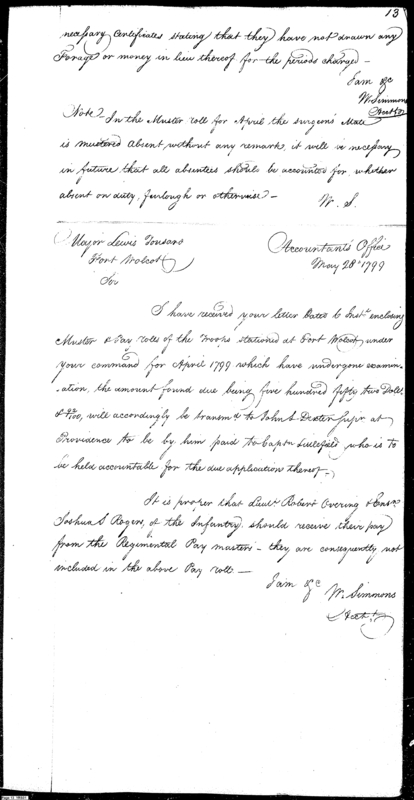 13
necessary Certificates stating that they have not drawn any
Forage or money in lieu thereof for the periods charged —
I am &c
W. Simmons
Acct
Note In the Muster roll for April the surgeon's Mate
is mustered absent without any remark, it will be necessary
in future that all absentees should be accounted for whether
absent on duty, furlough or otherwise —
W. S.
Major Lewis Tousard
Fort Wolcott
Accountants Office
May 28th 1799
Sir
I have received your letter enclosing
Muster & Pay rolls of the Troops stationed at Fort Wolcott under
your command for April 1799 which have undergone examin-
-ation, the amount found due being five hundred fifty two Dolls
&  /100, will accordingly be transmd to John S Dexter Supr at
Providence to be by him paid to Captn Littlefield who is to
be held accountable for the due application thereof.
It is proper that Lieut Robert Overing &
Joshua S Rogers, of the Infantry should receive their pay
from the Regimental Pay masters — they are consequently not
included in the above Pay roll —
I am &c
W. Simmons
Acctt